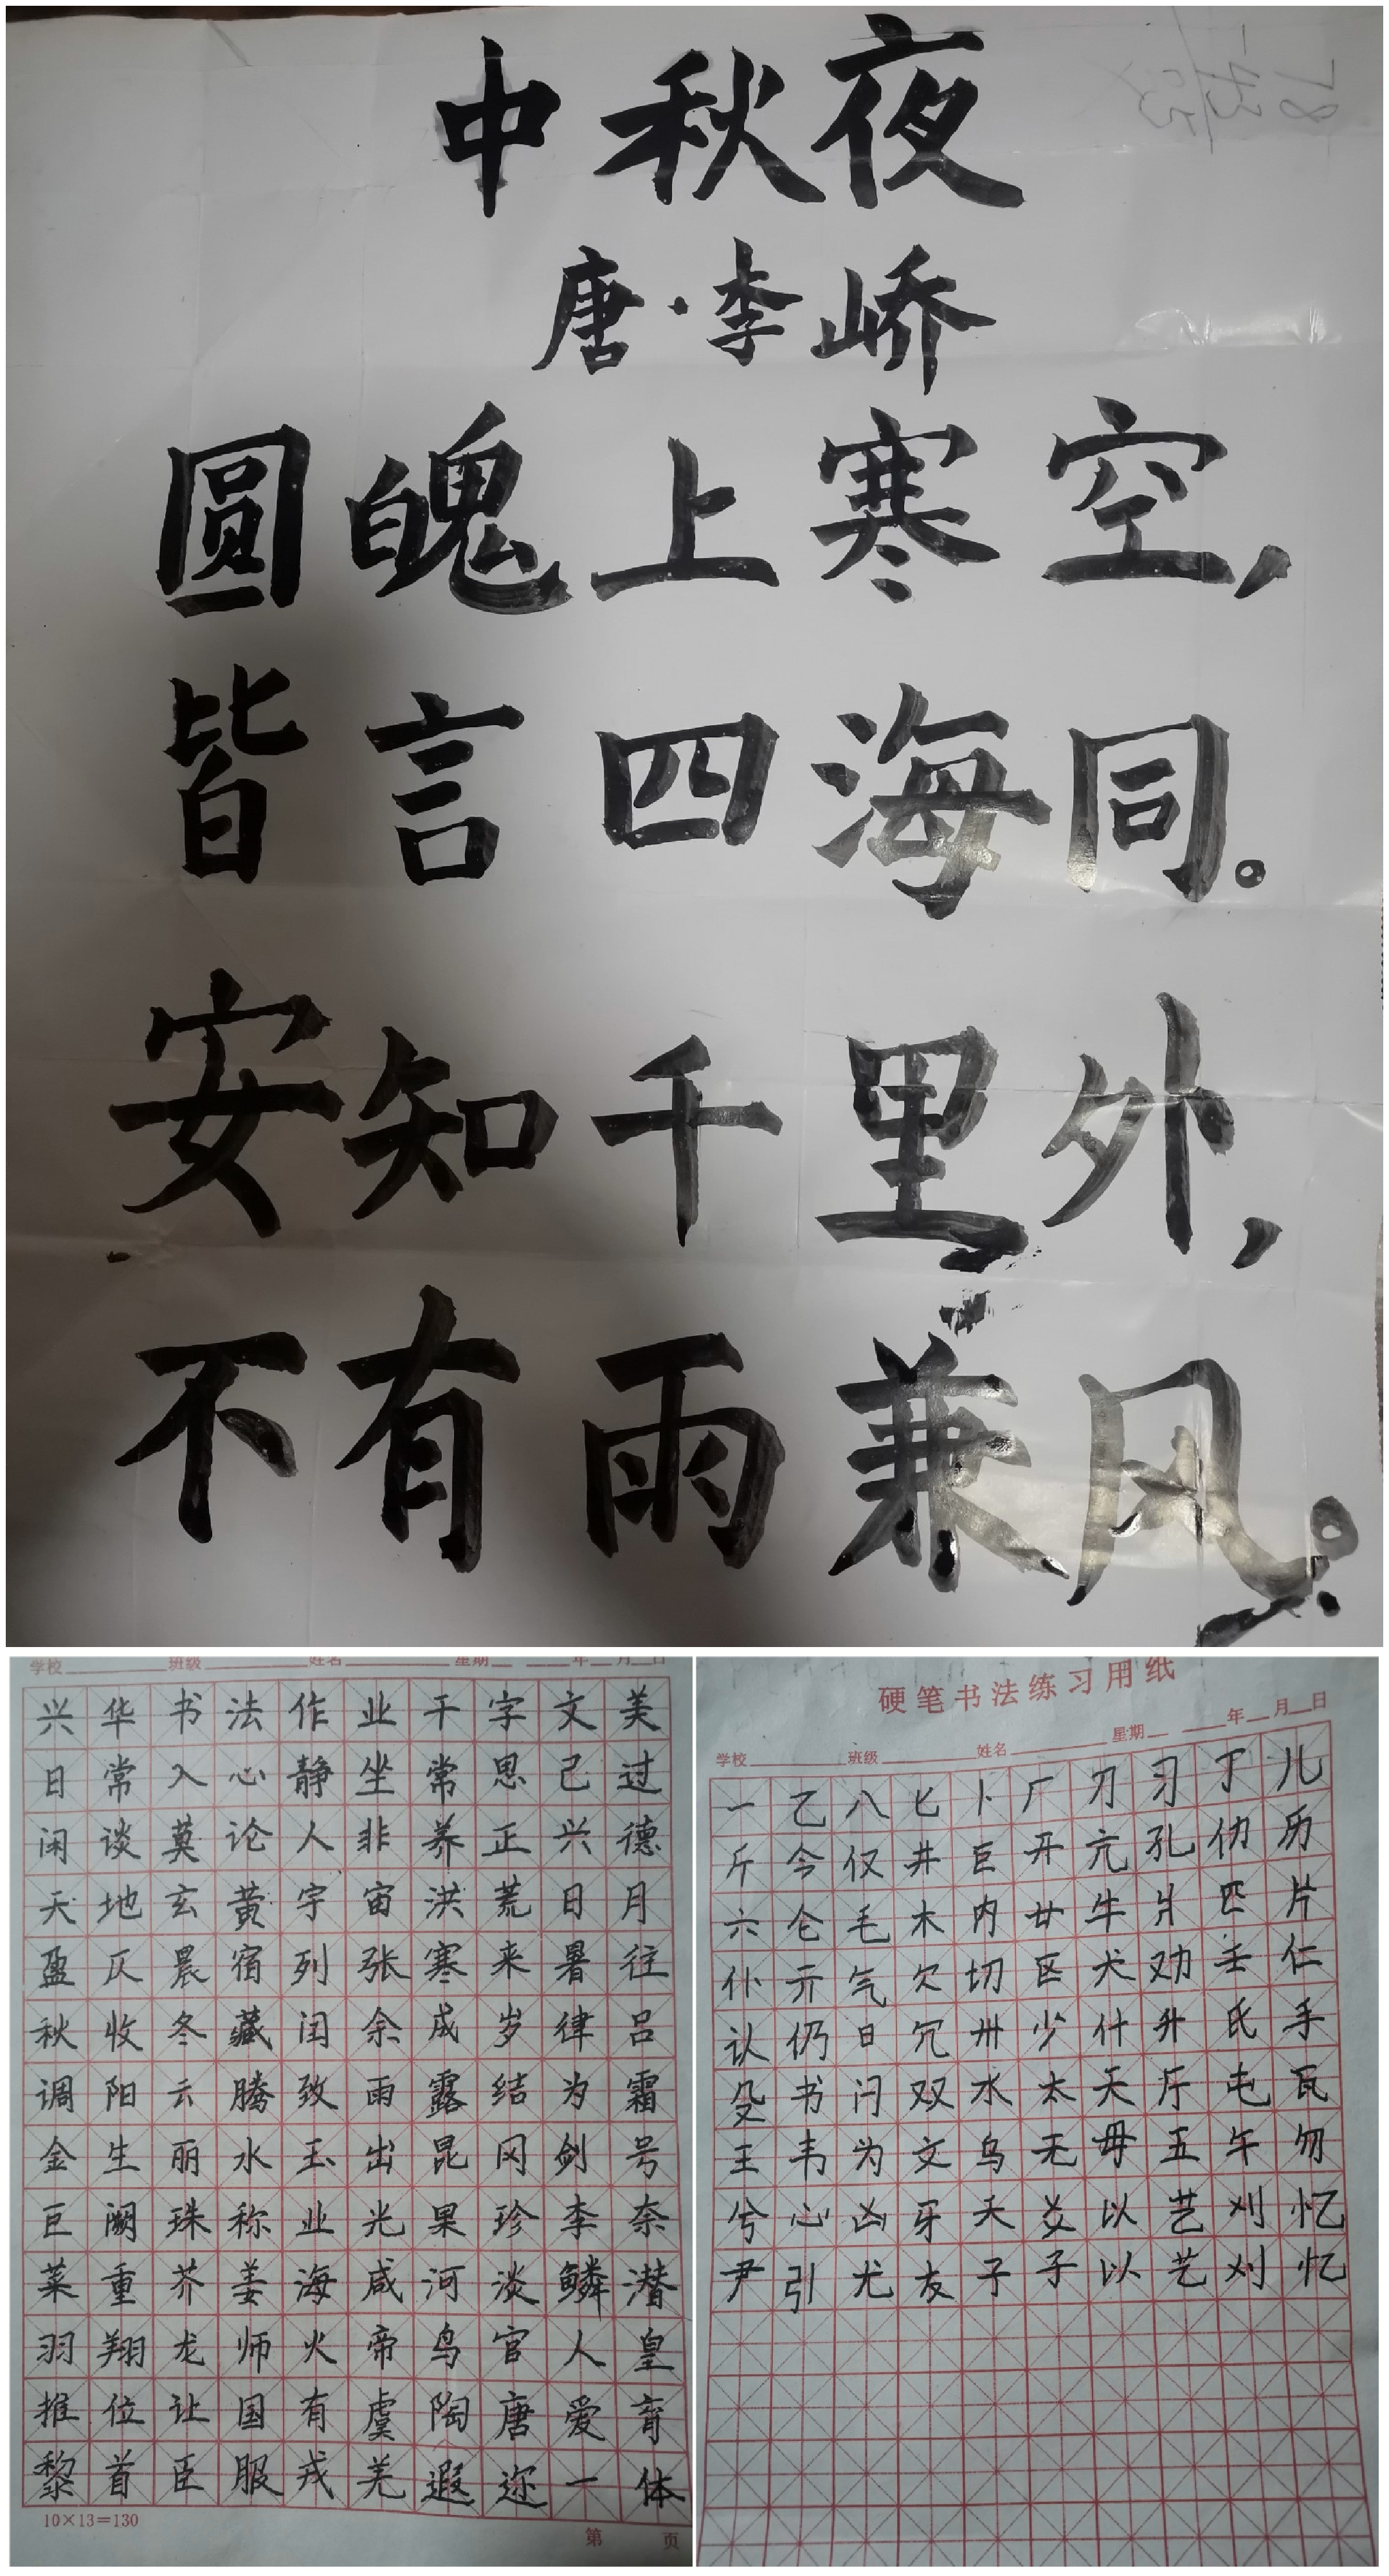 中秋夜
唐·李峤
圆魄上寒空，
皆言四海同。
安知千里外，
不有雨兼风。
学校 班级 姓名 星期 年 月 日
兴华书法作业千字文美
日常入心静坐常思己过
闲谈莫论人非养正兴德
天地玄黄宇宙洪荒日月
盈仄晨宿列张寒来暑往
秋收冬藏闰余成岁律吕
调阳云腾致雨露结为霜
金生丽水玉出昆冈剑号
巨阙珠称业光果珍李奈
菜重芥姜海咸河淡鳞潜
羽翔龙师火帝鸟官人皇
推位让国有虞陶唐爱育
黎首臣服戎羌遐迩一体
10×13=130
第 页
硬笔书法练习用纸
学校 班级 姓名 星期 年 月 日
一乙八匕卜厂刀习丁儿
斤今仅井巨开亢孔仂历
六仑毛木内廿牛爿匹片
仆亓气欠切区犬劝壬仁
认仍日冗卅少什升氏手
殳书闩双水太天厅屯瓦
王韦为文乌无毋五午勿
兮心凶牙夭爻以艺刈忆
尹引尤友子子以艺刈忆